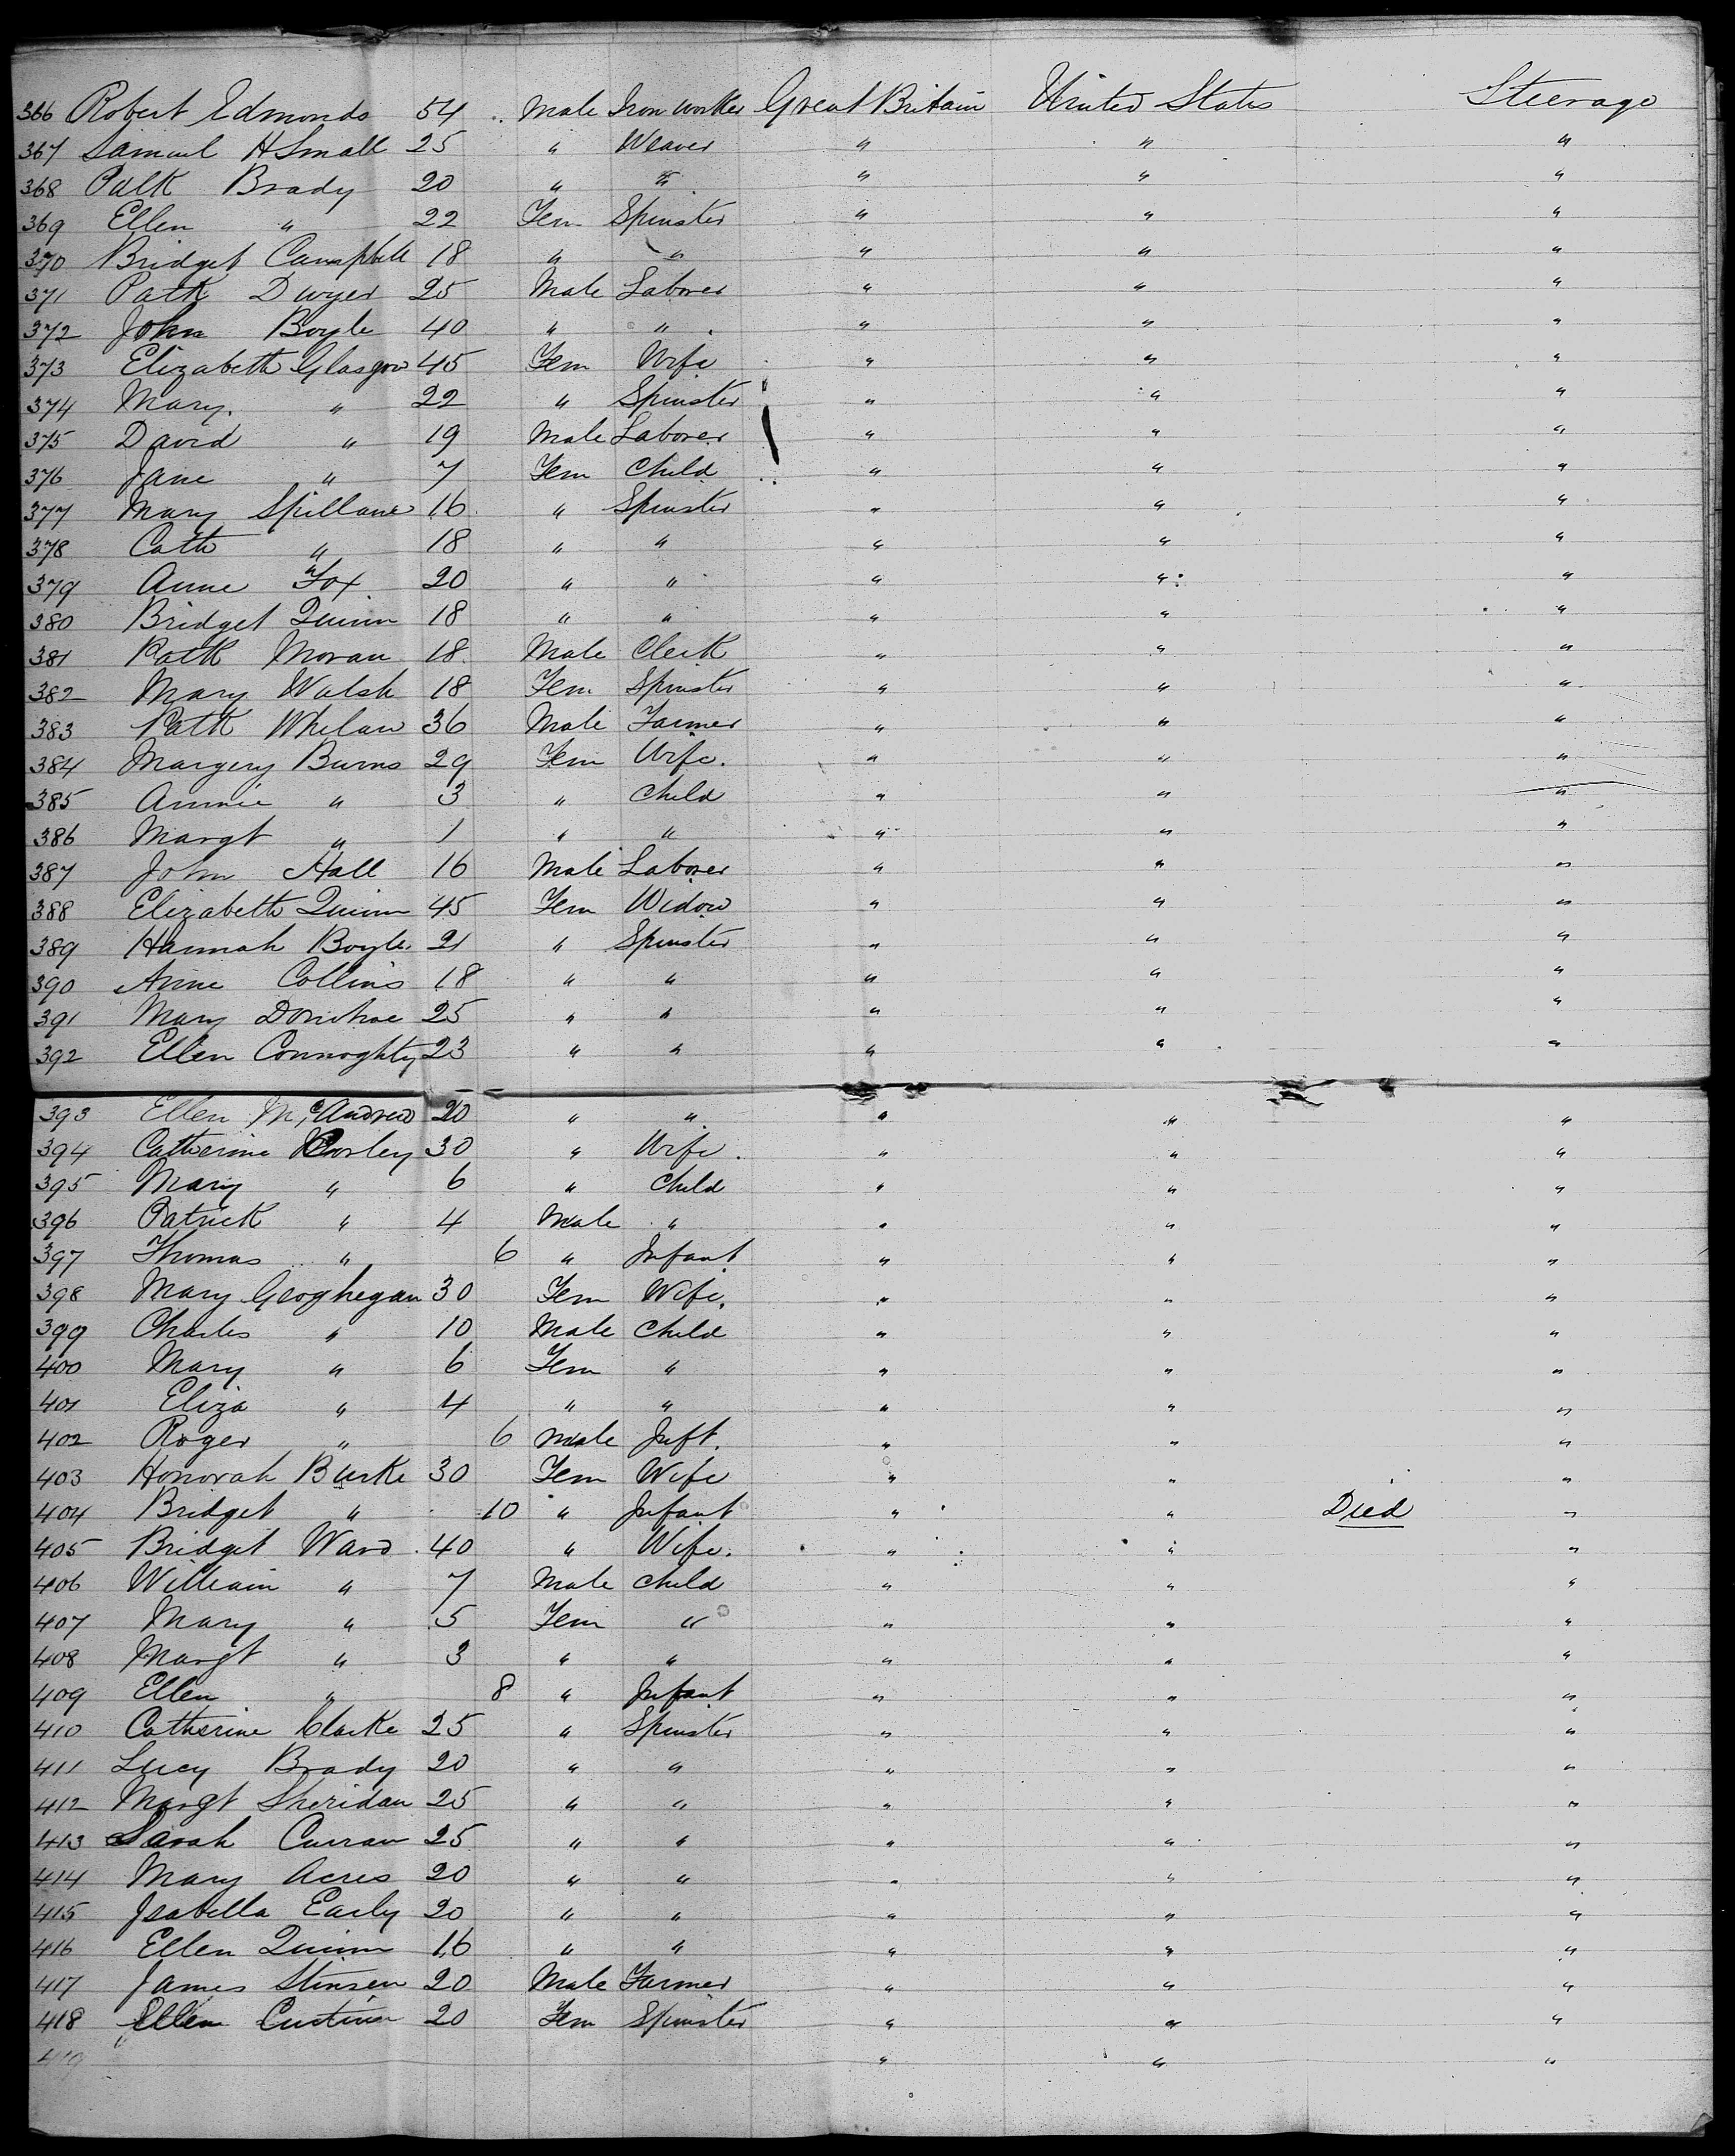 366 Robert Edmonds 54 Male Iron worker Great Britain United States Steerage
367 Samuel H Small 25 " Weaver " " "
368 Patk Brady 20 " " " " "
369 Ellen " 22 Fem Spinster " " "
370 Bridget Campbell 18 " " " " "
371 Patk Dwyer 25 Male Laborer " " "
372 John Boyle 40 " " " " "
373 Elizabeth Glasgow 45 Fem Wife " " "
374 Mary " 22 " Spinster " " "
375 David " 19 Male Laborer " " "
376 Jane " 7 Fem Child " " "
377 Mary Spillane 16 " Spinster " " "
378 Cath " 18 " " " " "
379 Anne Fox 20 " " " " "
380 Bridget Quinn 18 " " " " "
381 Patk Moran 18 Male Clerk " " "
382 Mary Walsh 18 Fem Spinster " " "
383 Patk Whelan 36 Male Farmer " " "
384 Margery Burns 29 Fem Wife. " " "
385 Annie " 3 " Child " " "
386 Margt " 1 " " " " "
387 John Hall 16 Male Laborer " " "
388 Elizabeth Quinn 45 Fem Widow " " "
389 Hannah Boyle 21 " Spinster " " "
390 Anne Collins 18 " " " " "
391 Mary Donohoe 25 " " " " "
392 Ellen Connoghty 23 " " " " "
393 Ellen McAndrew 20 " " " " "
394 Catherine 30 " Wife. " " "
395 Mary " 6 " Child " " "
396 Patrick " 4 Male " " " "
397 Thomas " 6 " Infant " " "
398 Mary Geoghegan 30 Fem Wife. " " "
399 Charles " 10 Male Child " " "
400 Mary " 6 Fem " " " "
401 Eliza " 4 " " " " "
402 Roger " 6 Male Inft. " " "
403 Honorah Burke 30 Fem Wife " " "
404 Bridget " 10 " Infant " " Died "
405 Bridget Ward 40 " Wife. " " "
406 William " 7 Male Child " " "
407 Mary " 5 Fem " " " "
408 Margt " 3 " " " " "
409 Ellen " 8 " Infant " " "
410 Catherine Clarke 25 " Spinster " " "
411 Lucy Brady 20 " " " " "
412 Margt Sheridan 25 " " " " "
413 Sarah Curran 25 " " " " "
414 Mary Acres 20 " " " " "
415 Isabella Early 20 " " " " "
416 Ellen Quinn 16 " " " " "
417 James Stinsen 20 Male Farmer " " "
418 Ellen 20 Fem Spinster " " "
419 " " "